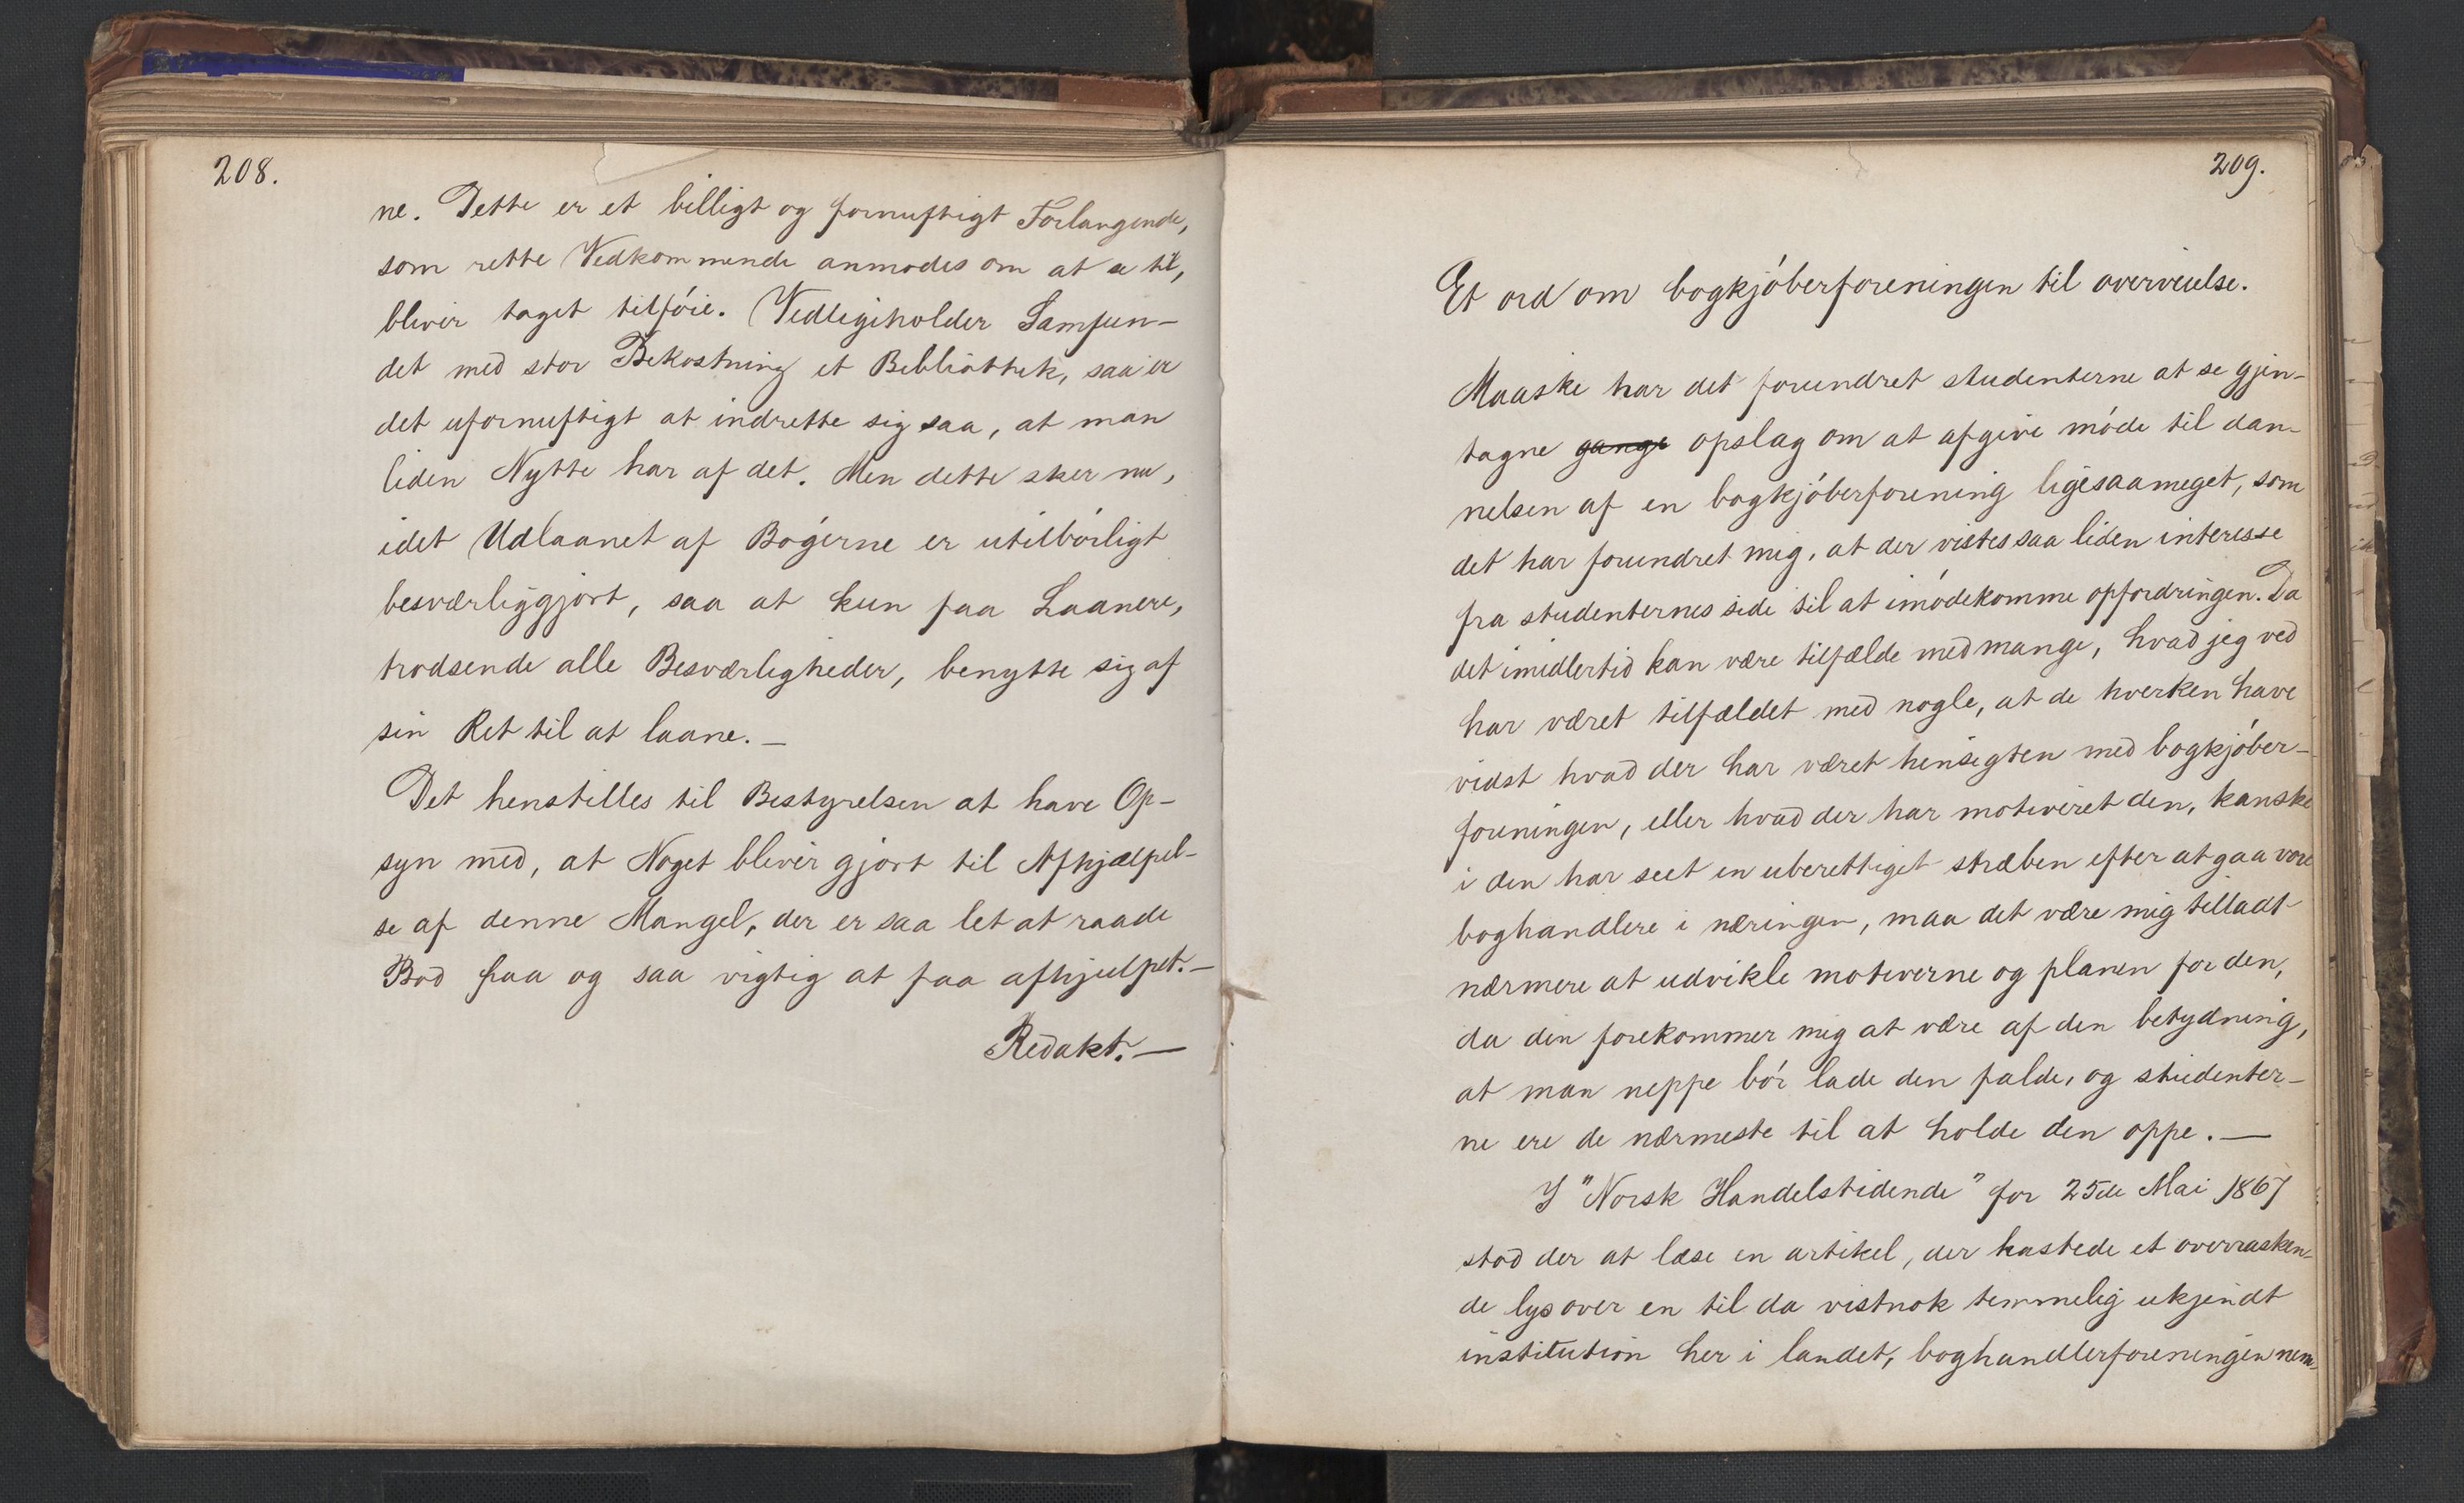 208.
ne. Dette er et billigt og fornuftigt Forlangende,
som rette Vedkommende anmodes om at se til,
bliver taget tilföie. Vedligeholder Samfun-
det med stor Bekostning et Bibliothek, saa er
det ufornuftigt at indrette sig saa, at man
liden Nytte har af det. Men dette sker nu,
idet Udlaanet af Bøgerne er utilbörligt
besværliggjort, saa at kun faa Laanere,
trodsende alle Besværligheder, benytte sig af
sin Ret til at laane. —
Det henstilles til Bestyrelsen at have Op-
syn med, at Noget bliver gjort til Afhjælpel-
se af denne Mangel, der er saa let at raade
Bod paa og saa vigtig at faa afhjulpet. —
Redakt. —
209.
Et ord om bogkjöberforeningen til overveielse.
Maaske har det forundret studenterne at se gjen-
tagne gange opslag om at afgive möde til dan-
nelsen af en bogkjöberforening ligesaameget, som
det har forundret mig, at der vistes saa liden interesse
fra studenternes side til at imödekomme opfordringen. Da
det imidlertid kan være tilfælde med mange, hvad jeg ved
har været tilfældet med nogle, at de hverken have
vidst hvad der har været hensigten med bogkjöber-
foreningen, eller hvad der har motiveret den, kanske
i den har seet en uberettiget stræben efter at gaa vore
boghandlere i næringen, maa det være mig tilladt
nærmere at udvikle motiverne og planen for den,
da den forekommer mig at være af den betydning,
at man neppe bör lade den falde, og studenter-
ne ere de nærmeste til at holde den oppe. —
I "Norsk Handelstidende" for 25de Mai 1867
stod der at læse en artikel, der kastede et overrasken-
de lys over en til da vistnok temmelig ukjendt
institution her i landet, boghandlerforeningen nem-